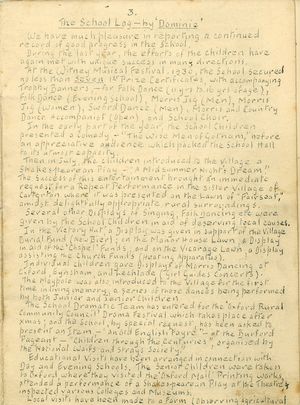 3.
The School Log – by 'Dominie'
We have much pleasure in reporting a continued
record of good progress in the School.
During the last year, the efforts of the children have
again met with unique success in many directions.
At the Witney Musical Festival, 1930, the School secured
no less than Seven 1st Prize Certificates, with accompanying
Trophy Banners, – for Folk Dance
Folk Dance (Evening School), Morris Jig (Men), Morris
Jig (Women), Sword Dance (Men), Morris and Country
Dance Accompanist (Open), and School Choir.
In the early part of the year, the School Children
presented a Comedy – "The Wise Men of Gotham", before
an appreciative audience which packed the School Hall
to its utmost capacity.
Then in July, the children introduced to the Village a
Shakespearean Play – "A Mid-summer Night's Dream".
The success of this entertainment brought an immediate
request for a Repeat Performance in the sister Village of
where it was presented on the Lawn of
amidst delightfully appropriate rural surroundings.
Several other Displays in Singing, Folk Dancing etc were
given by the School Children in aid of deserving local causes.
In the 'Victory Hut' a Display was given in support of the Village
Burial Fund (New Bier); on the Manor House Lawn, a Display
in aid of the Gospel Funds; and on the Vicarage Lawn a display
assisting the Church Funds (Heating Apparatus).
Individual children gave displays of Morris Dancing at
Oxford, Eynsham, and Lechlade (Girl Guides Concerts).
The Maypole was also introduced to the Village for the first
time in living memory, a series of more dances being performed
by both Junior and Senior Children.
The School Dramatic Team has entered for the 'Oxford Rural
Community Council' Drama Festival which takes place after
xmas; and the School, by special request, has been asked to
present an Item – "An Old English Fayre" – at the Burford
Pageant – "Children through the Centuries", organised by
the 'National Waifs and Strays Society'.
Educational Visits have been arranged in connection with
Day and Evening Schools. The Senior Children were taken
to Oxford, where they visited the 'Oxford Mail' Printing Works,
attended a performance of a Shakespearean Play at the Theatre,
inspected various Colleges and Museums.
Local visits have been made to a Farm (observing Agricultural